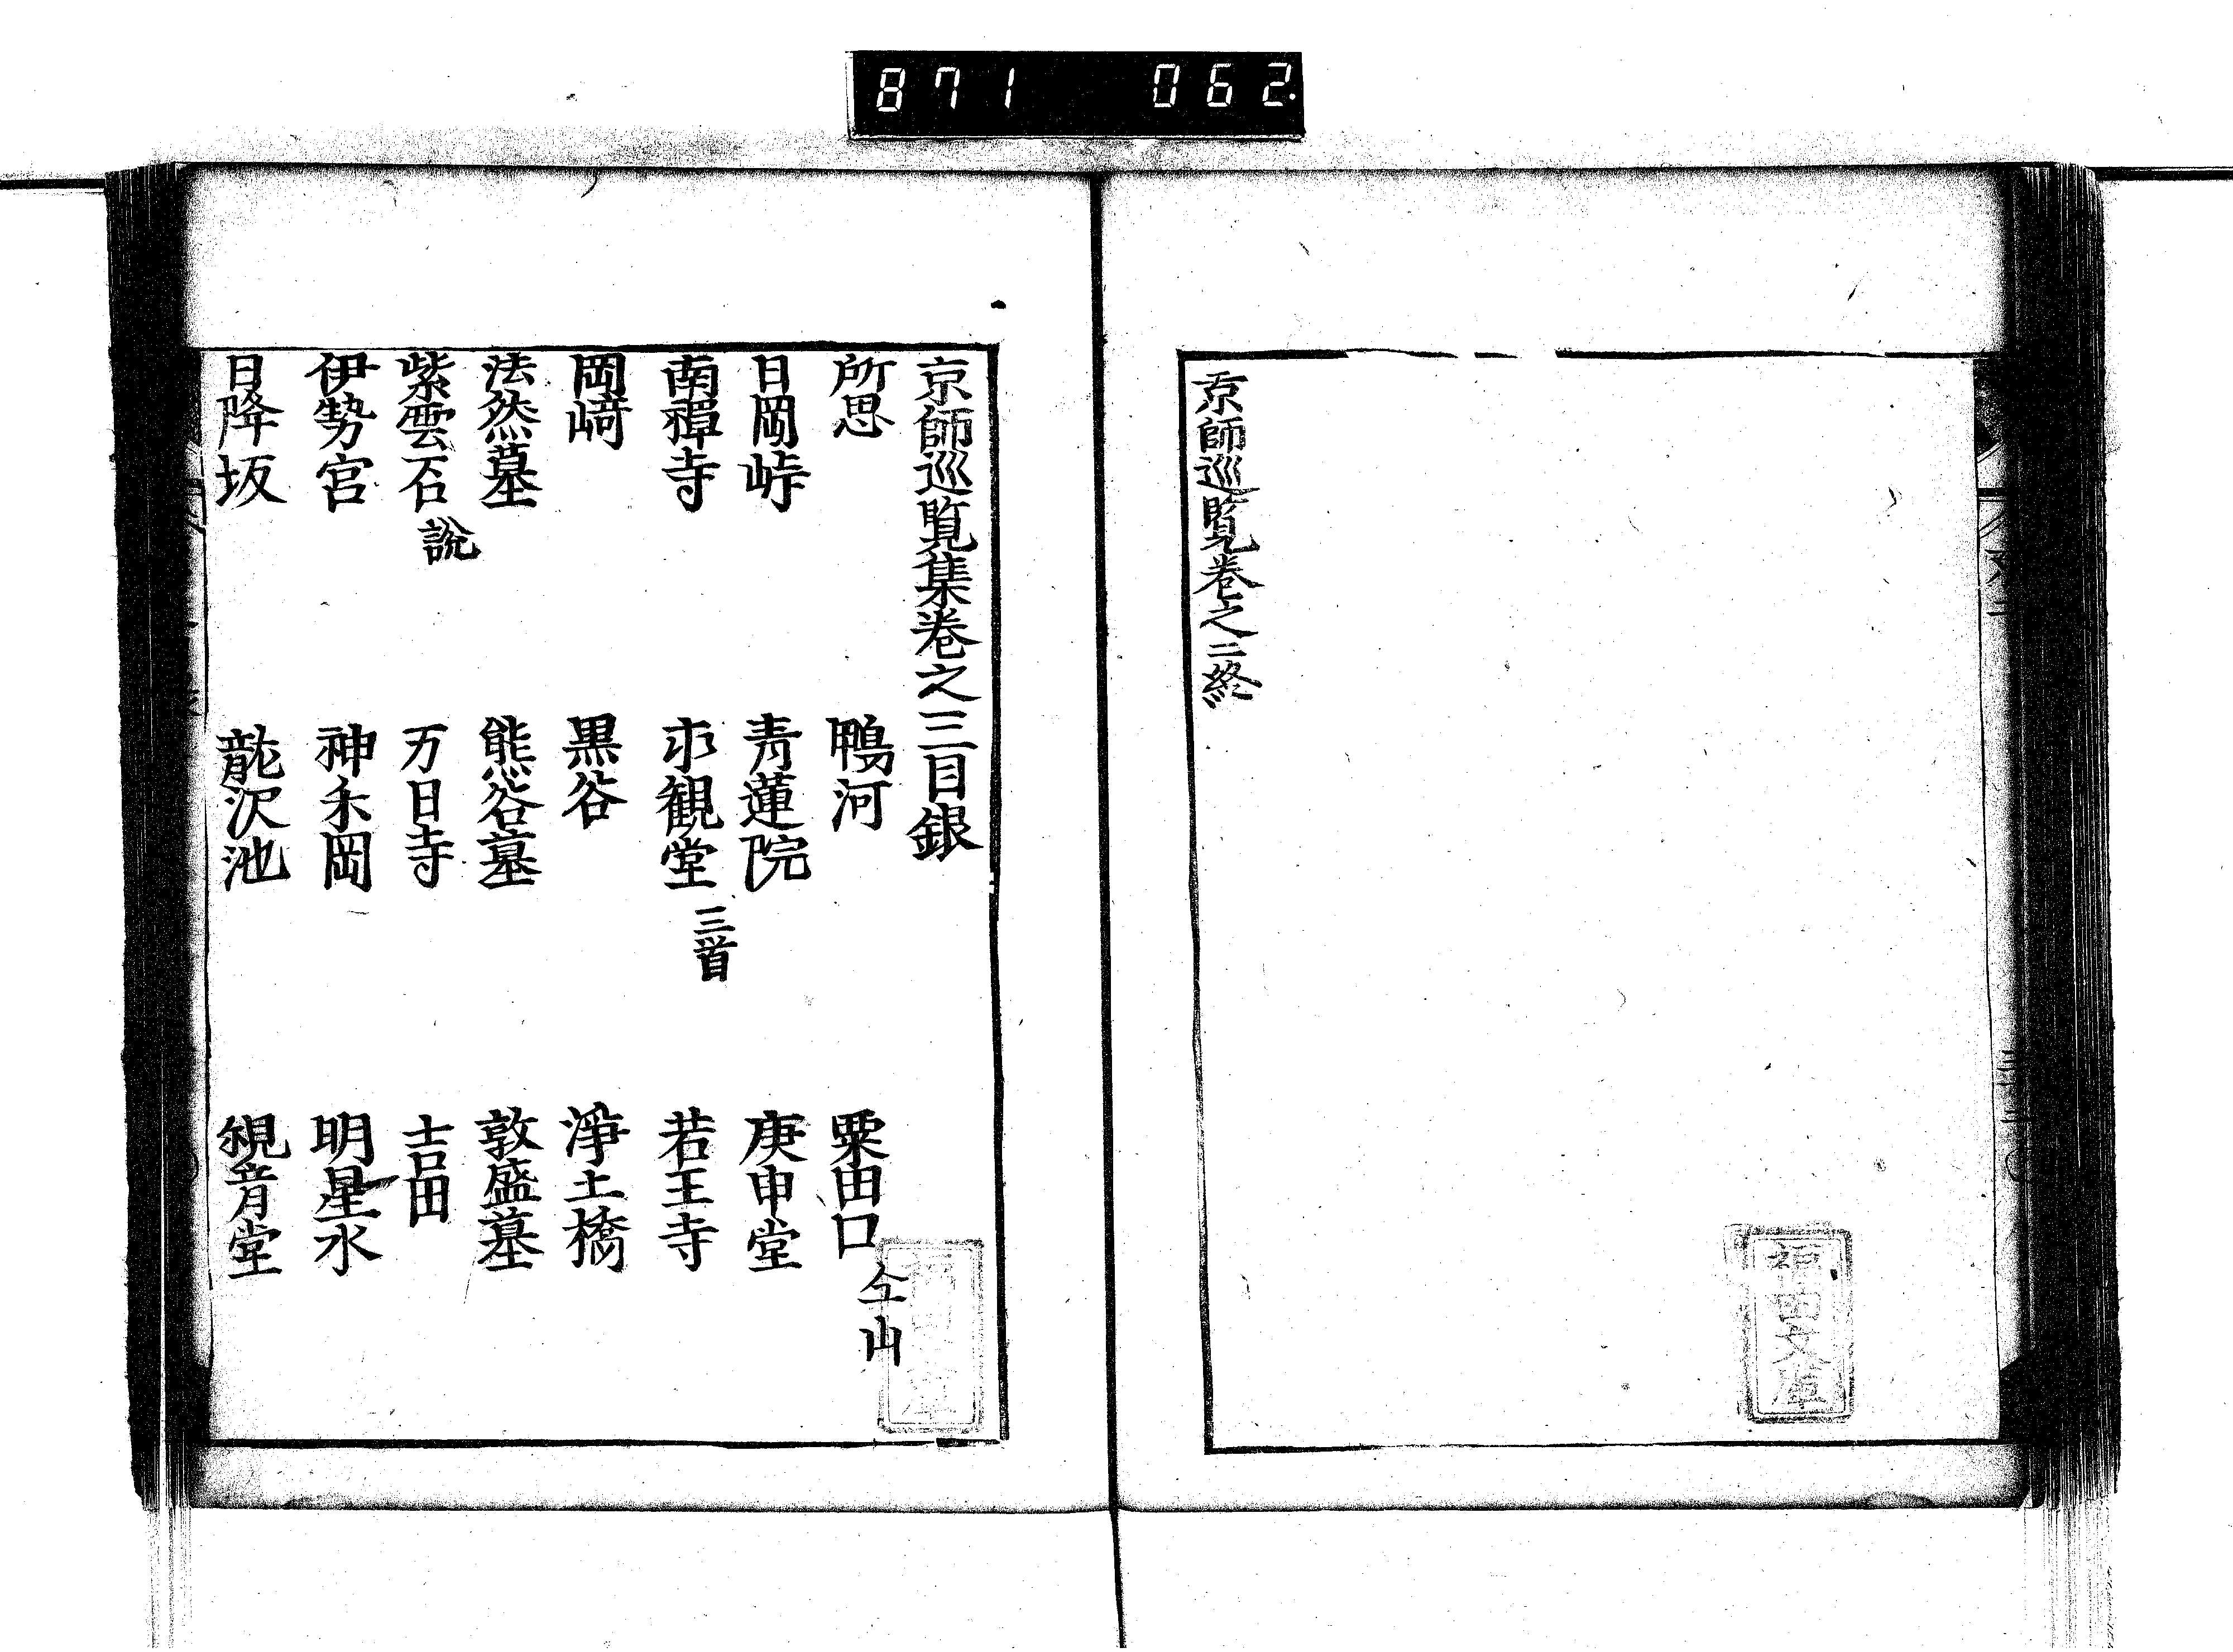 871 062
京師巡覧巻之二終
福助文庫
京師巡覧集巻之三目銀
所思 鴨河 粟田口 仝山
日岡峠 青蓮院 庚申堂
南禅寺 永観堂 三首 若王寺
岡﨑 黒谷 浄土橋
法然墓 熊谷墓 敦盛墓
紫雲石 説 万日寺 吉田
伊勢宮 神楽岡 明星水
日降坂 龍沢池 観音堂